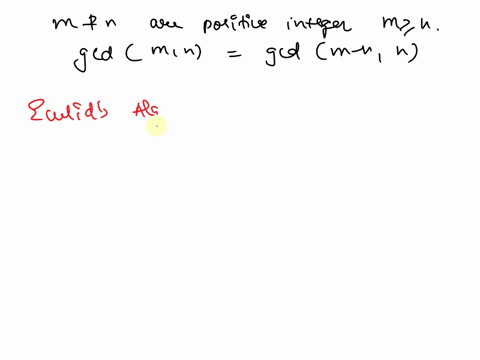 m & n are positive integer m ≥ n.
gcd ( m, n) = gcd ( m-n, n)
Euclid's Alg